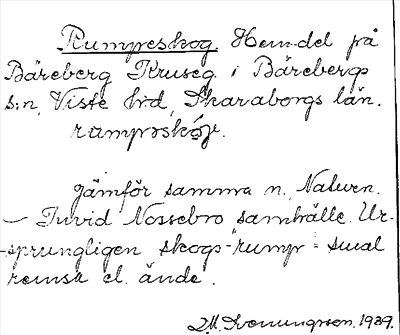 Rumpeskog. Hem.del på
Bäreberg Kruseg. i Bärebergs
s:n, Viste h:d, Skaraborgs län.
rampskóg.
Jämför samma n. Naturn.
– Invid Nossebro samhälle. Ur-
sprungligen skogs-"rump" = smal
remsa el. ände.
1939.